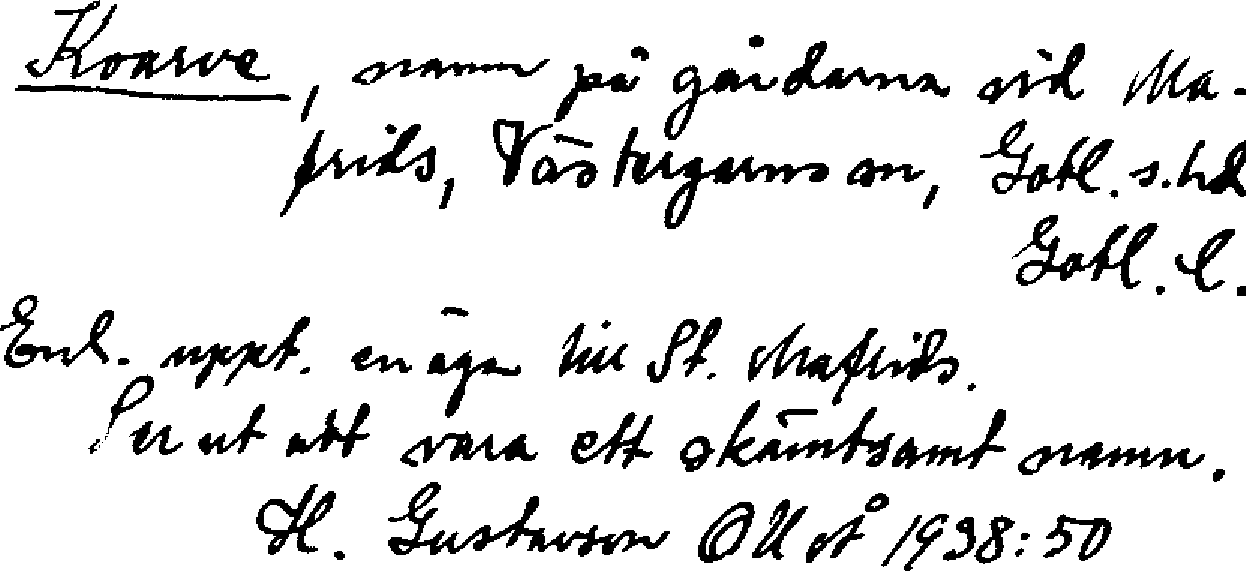 Koarve, namn på gårdarna vid Ma-
frids, Västergarns sn, Gotl. s. hd
Gotl. l.
Enl. uppt. en äga till St. Mafrids.
Ser ut att vara ett skämtsamt namn.
H. Gustavson 1938:50